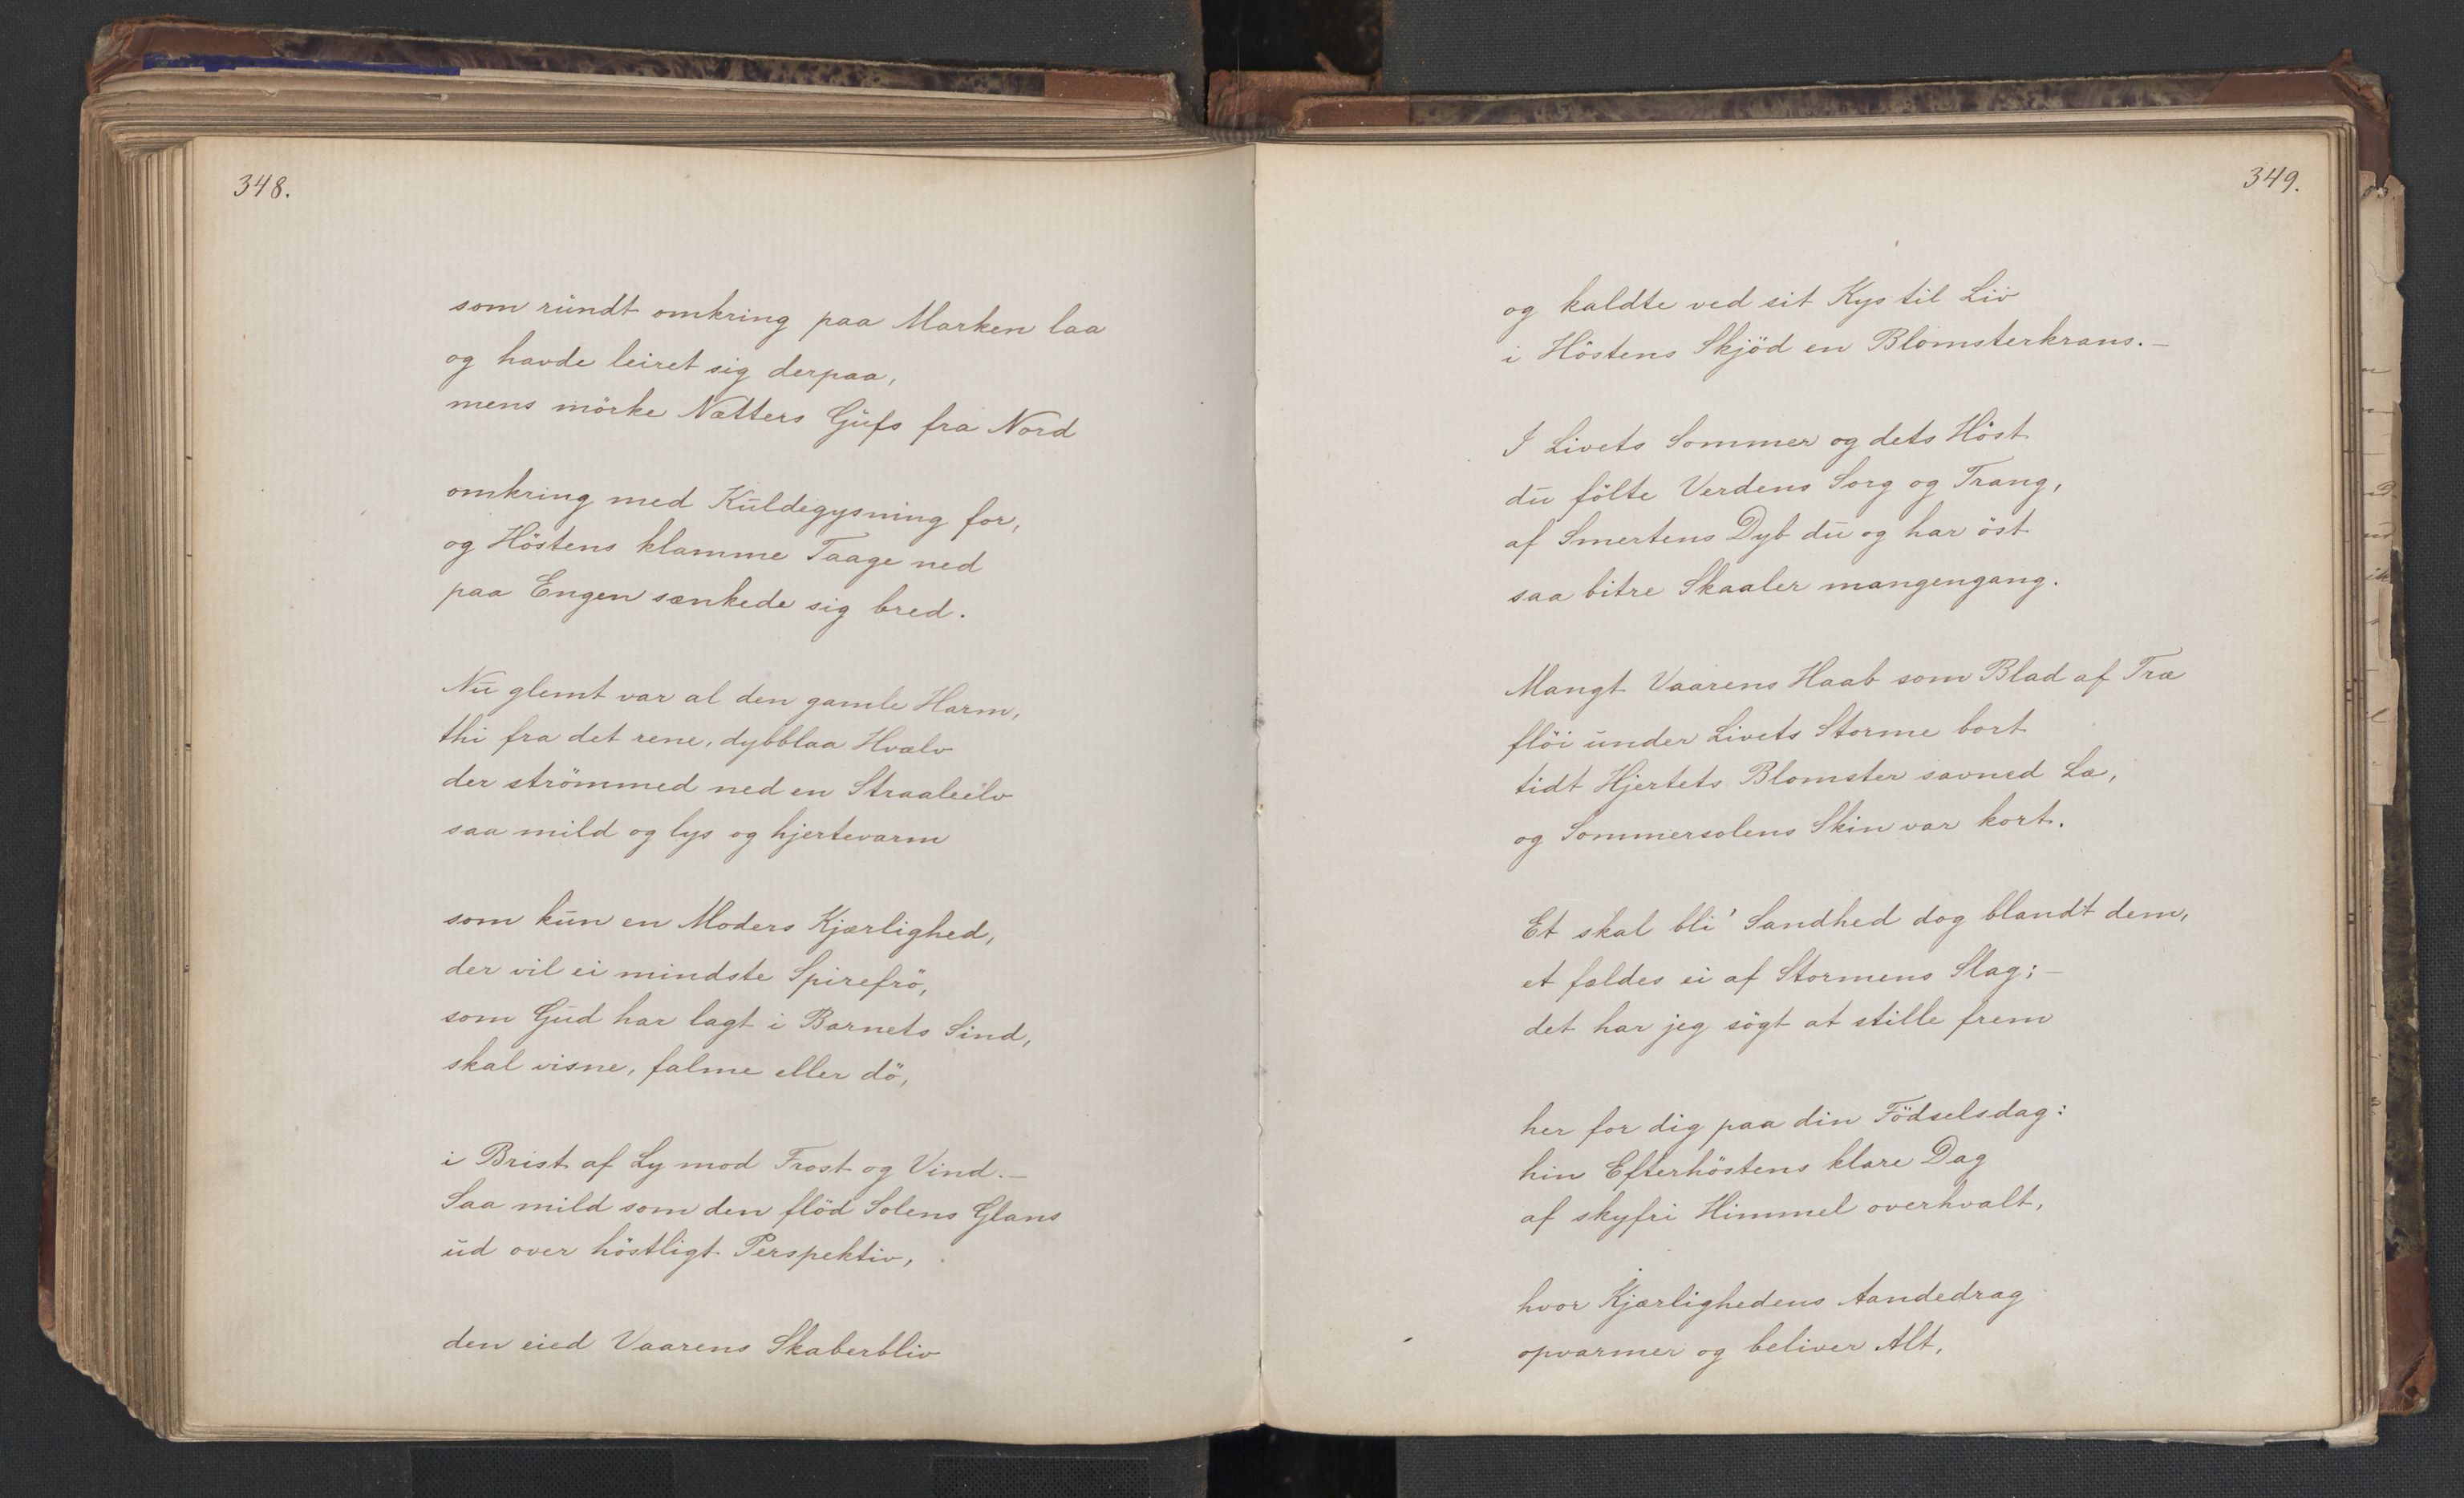 348.
som rundt omkring paa Marken laa
og havde leiret sig derpaa,
mens mörke Nætters Gufs fra Nord
omkring med Kuldegysning for,
og Höstens klamme Taage ned
paa Engen sænkede sig bred.
Nu glemt var al den gamle Harm,
thi fra det rene, dybblaa Hvælv
der strömmed ned en Straaleelv
saa mild og lys og hjertevarm
som kun en Moders Kjærlighed,
der vil ei mindste Spirefrö,
som Gud har lagt i Barnets Sind,
skal visne, falme eller dö,
i Brist af Ly mod Frost og Vind. –
Saa mild som den flöd Solens Glans
ud over höstligt Perspektiv,
den eied Vaarens Skaberbliv
349.
og kaldte ved sit Kys til Liv
i Höstens Skjöd en Blomsterkrans. –
I Livets Sommer og dets Höst
du fölte Verdens Sorg og Trang,
af Smertens Dyb du og har öst
saa bitre Skaaler mangengang.
Mangt Vaarens Haab som Blad af Træ
flöi under Livets Storme bort
tidt Hjertets Blomster savned Læ,
og Sommersolens Skin var kort.
Et skal bli' Sandhed dog blandt dem,
et fældes ei af Stormens Slag; –
det har jeg sögt at stille frem
her for dig paa din Födselsdag:
hin Efterhöstens klare Dag
af skyfri Himmel overhvalt,
hvor Kjærlighedens Aandedrag
opvarmer og beliver Alt,